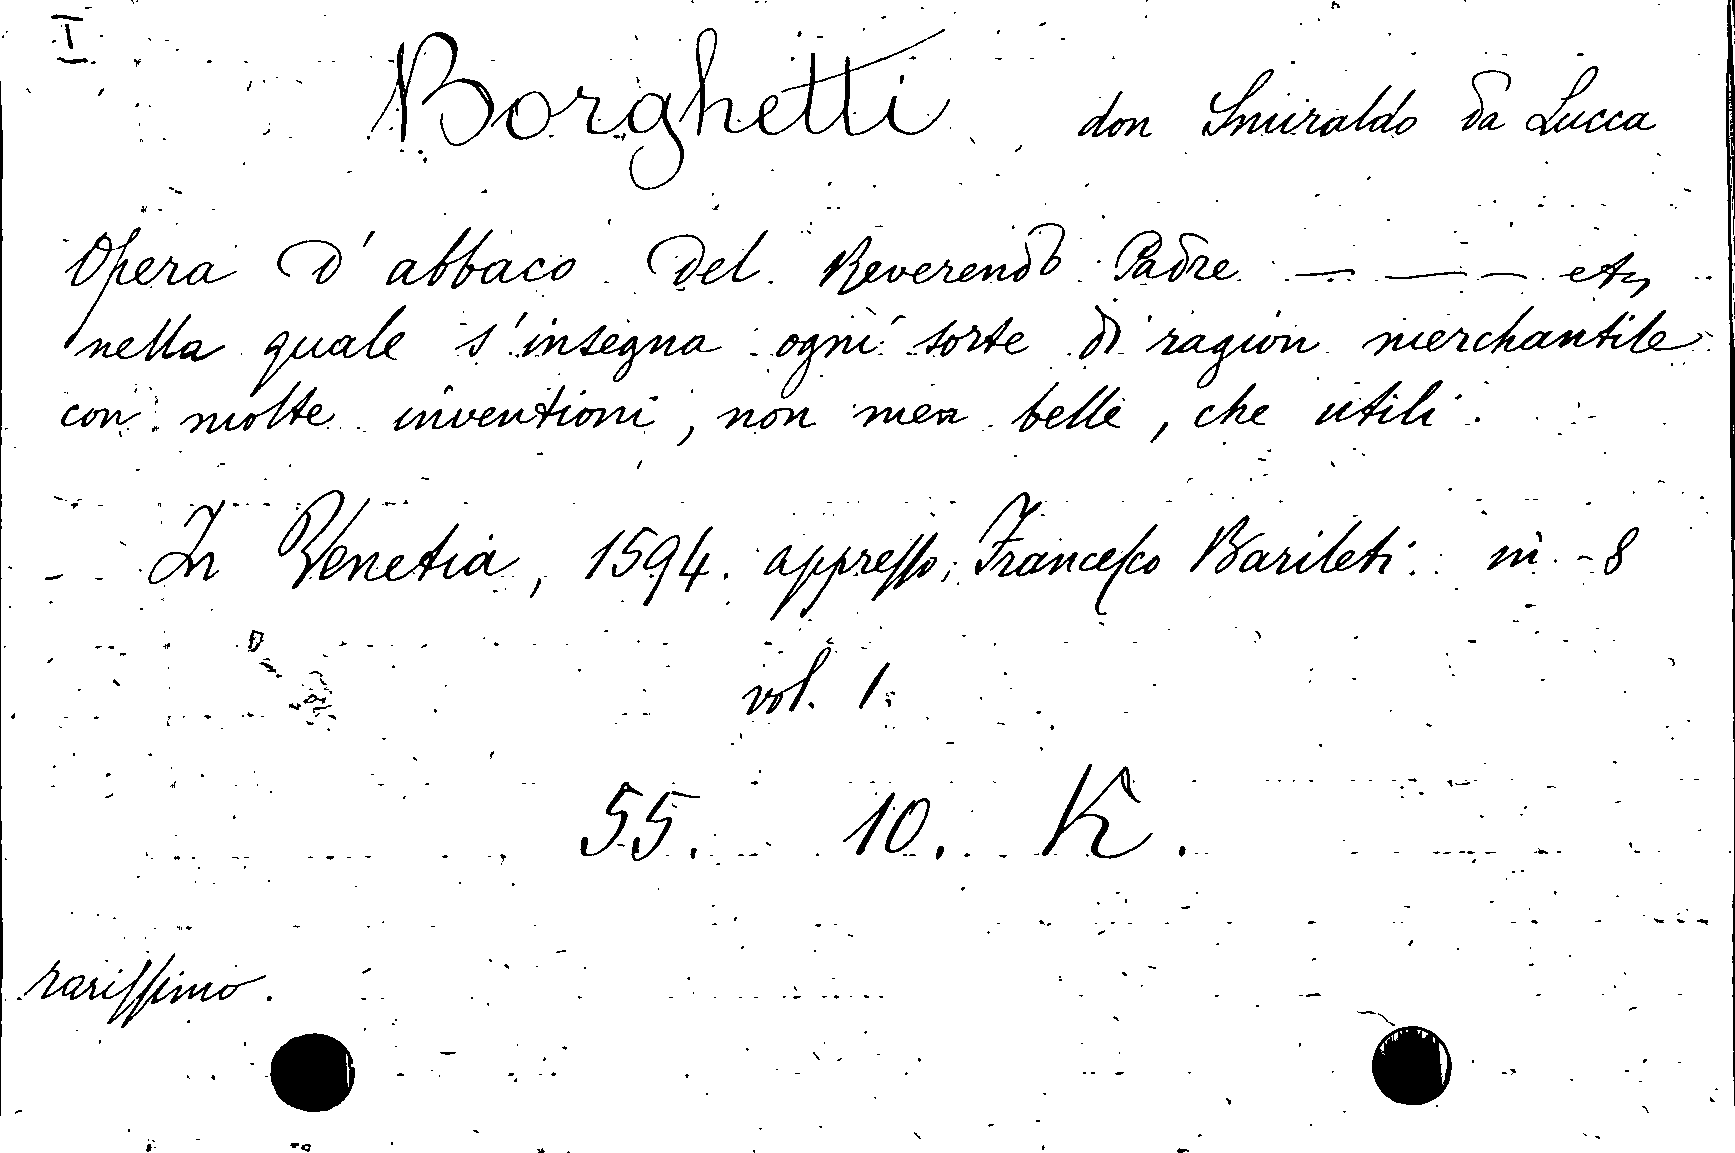 I
Borghetti don Smiraldo da Lucca
Opera d'abbaco del Reverendo Padre — — — etc
nella quale s'insegna ogni sorte di ragion merchantile
con molte inventioni, non men belle, che utili.
In Venetia, 1594. appresso, Francesco Barileti. in -8
vol. 1.
55. 10. K.
rarissimo.